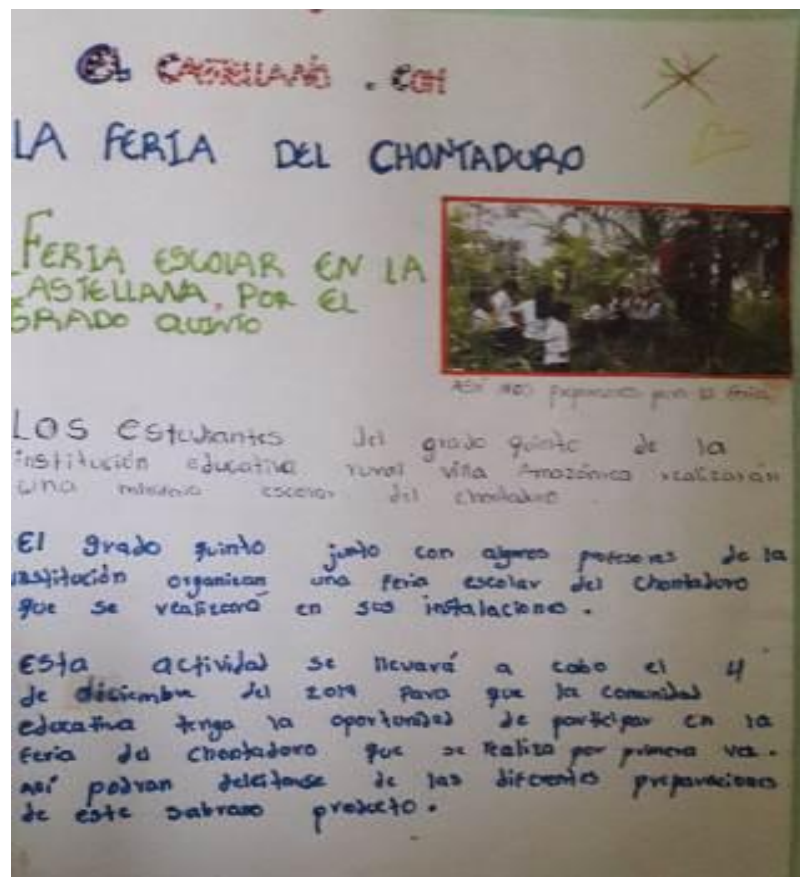 EL CASTELLANO . COM
LA FERIA DEL CHONTADURO
FERIA ESCOLAR EN LA
CASTELLANA, POR EL
GRADO QUINTO
ASÍ nos preparamos para la feria
LOS Estudiantes del grado quinto de la
institución educativa rural villa Amazónica realizarán
una escolar del chontaduro
El grado quinto junto con algunos profesores de la
institución organizan una feria escolar del Chontaduro
que se realizará en sus instalaciones.
Esta actividad se llevará a cabo el 4
de diciembre del 2019 para que la comunidad
educativa tenga la oportunidad de participar en la
feria del Chontaduro que se realiza por primera vez.
Así podran deleitarse de las diferentes preparaciones
de este sabroso producto.